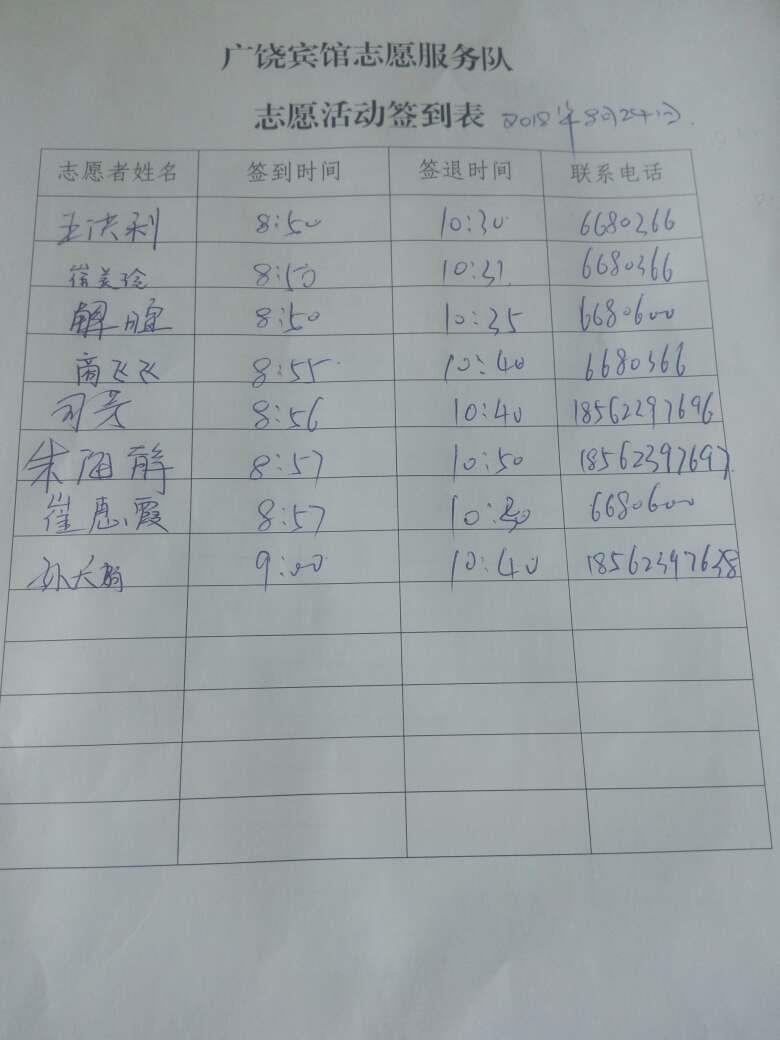 广饶宾馆志愿服务队
志愿活动签到表 2018年8月24日
志愿者姓名 签到时间 签退时间 联系电话
王洪利 8:50 10:30 6680366
崔美玲 8:50 10:31 6680366
解暄 8:50 10:35 6680600
商飞飞 8:55 10:40 6680366
司芳 8:56 10:40 18562297696
朱海解 8:57 10:50 18562397697
崔惠霞 8:57 6680600
孙天 9:00 10:40 18562397638